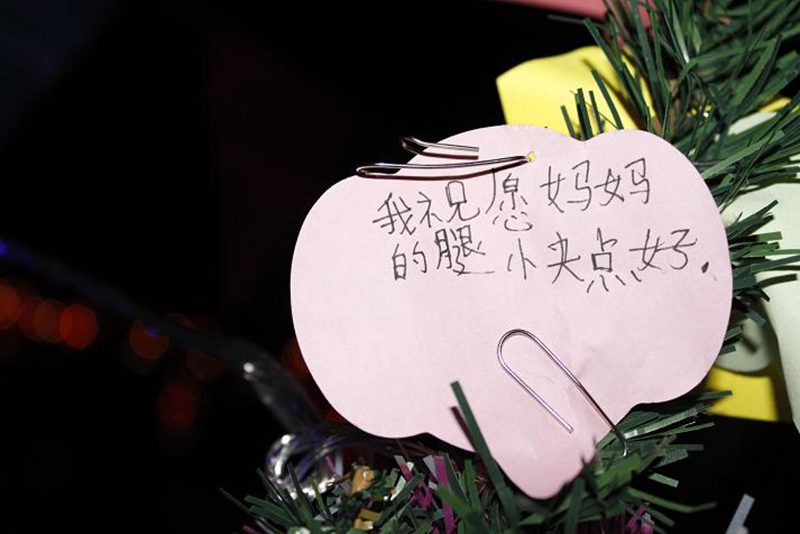 我祝愿妈妈
的腿快点好.